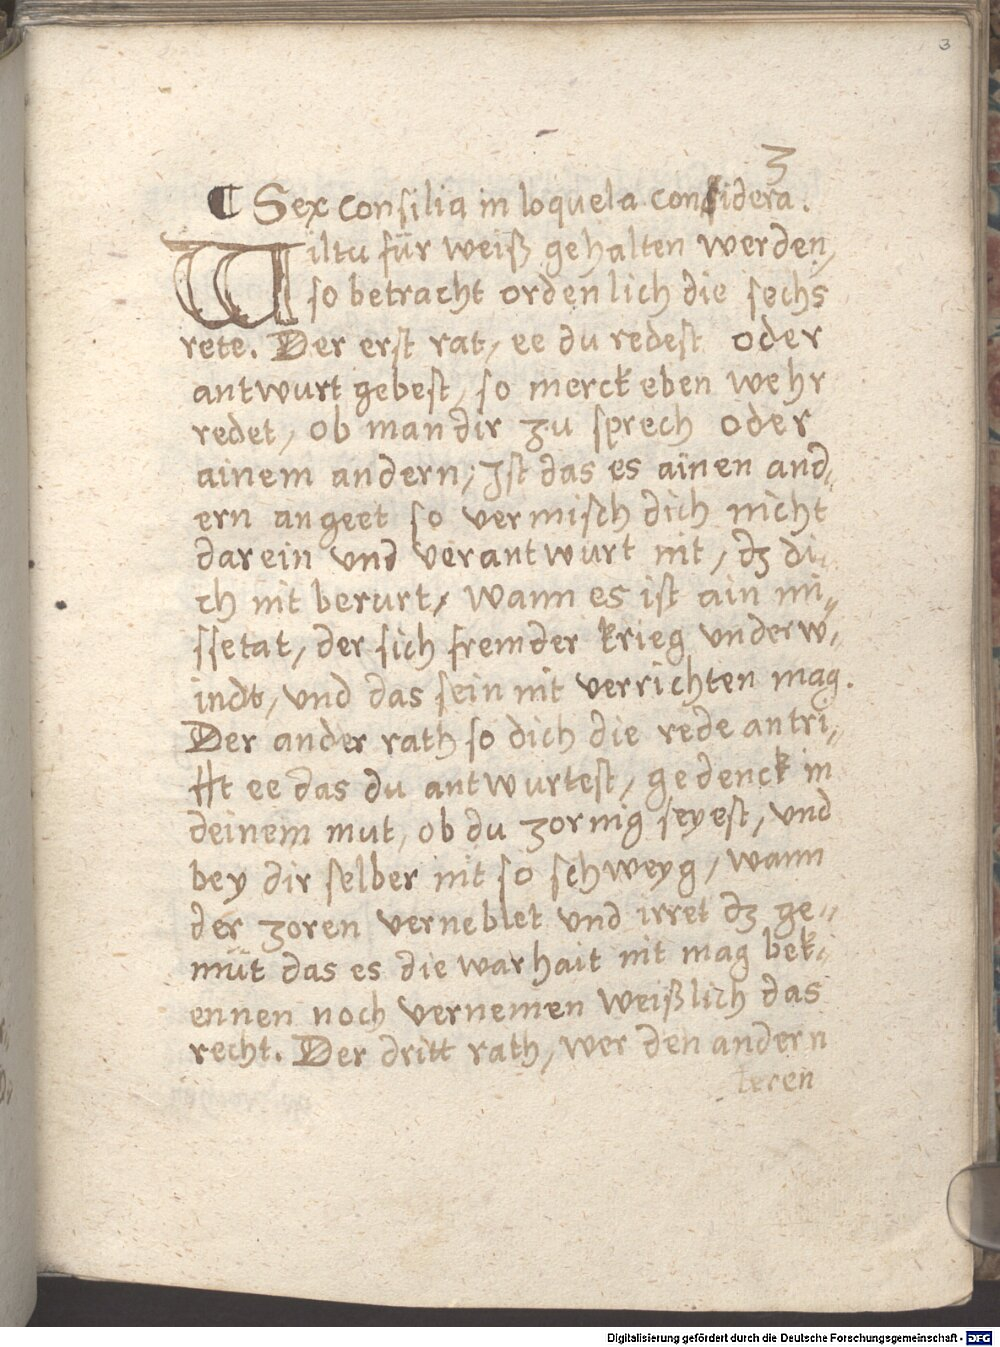 3
3
¶ Sex consilia in loquela considera.
Wiltu für weiß gehalten werden,
so betracht ordenlich die sechs
rete. Der erst rat, ee du redest oder
antwurt gebest, so merck eben wehr
redet, ob man dir zu sprech oder
ainem andern, Ist das es ainen and⸗
ern angeet so vermisch dich nicht
darein vnd verantwurt nit, dz di⸗
ch nit berurt, wann es ist ain mi⸗
ssetat, der sich fremder krieg vnderw⸗
indt, vnd das sein nit verrichten mag.
Der ander rath so dich die rede antri⸗
fft ee das du antwurtest, gedenck in
deinem mut, ob du zornig seyest, vnd
bey dir selber nit so schweyg, wann
der zoren verneblet vnd irret dz ge⸗
müt das es die warhait nit mag bek⸗
ennen noch vernemen weißlich das
recht. Der dritt rath, wer den andern
leren
Digitalisierung gefördert durch die Deutsche Forschungsgemeinschaft - DFG